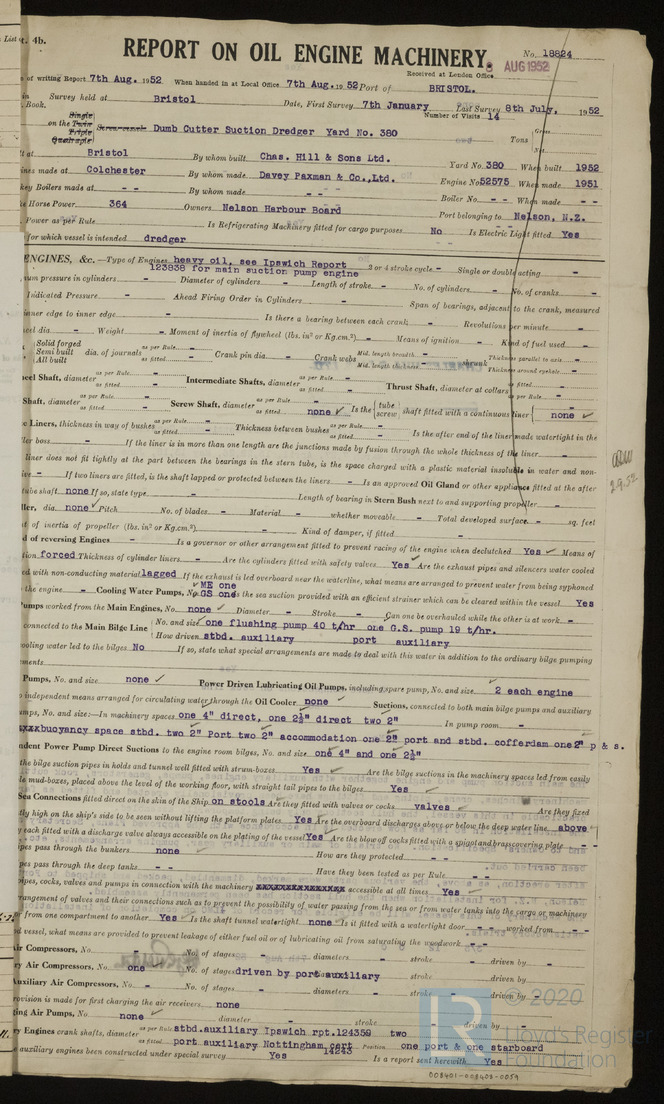 List
t. 4b.
REPORT ON OIL ENGINE MACHINERY.
No. 18824
Received at London Office
AUG 1952
of writing Report 7th Aug. 1952 When handed in at Local Office 7th Aug. 1952 Port of BRISTOL.
in Survey held at Bristol Date, First Survey 7th January Last Survey 8th July, 1952
Book. Number of Visits 14
on the Single Twin Triple Quadruple Screw vessel Dumb Cutter Suction Dredger Yard No. 380 Tons Gross Net
lt at Bristol By whom built Chas. Hill & Sons Ltd. Yard No. 380 When built 1952
ines made at Colchester By whom made Davey Paxman & Co.,Ltd. Engine No. 52575 When made 1951
key Boilers made at - - By whom made - - Boiler No. - - When made - -
e Horse Power 364 Owners Nelson Harbour Board Port belonging to Nelson, N.Z.
Power as per Rule Is Refrigerating Machinery fitted for cargo purposes No Is Electric Light fitted Yes
for which vessel is intended dredger
ENGINES, &c.—Type of Engines heavy oil, see Ipswich Report 2 or 4 stroke cycle - Single or double acting -
123838 for main suction pump engine
um pressure in cylinders - Diameter of cylinders - Length of stroke - No. of cylinders - No. of cranks -
Indicated Pressure - Ahead Firing Order in Cylinders - Span of bearings, adjacent to the crank, measured
inner edge to inner edge - Is there a bearing between each crank - Revolutions per minute -
eel dia. - Weight - Moment of inertia of flywheel (lbs. in² or Kg.cm.²) - Means of ignition - Kind of fuel used -
Solid forged Semi built All built dia. of journals as per Rule - as fitted - Crank pin dia. - Crank webs Mid. length breadth - Mid. length thickness - shrunk Thickness parallel to axis - Thickness around eyehole -
eel Shaft, diameter as per Rule - as fitted - Intermediate Shafts, diameter as per Rule - as fitted - Thrust Shaft, diameter at collars as per Rule - as fitted -
Shaft, diameter as per Rule - as fitted - Screw Shaft, diameter as per Rule - as fitted none ✓ Is the { tube screw } shaft fitted with a continuous liner { none ✓
e Liners, thickness in way of bushes as per Rule - as fitted - Thickness between bushes as per Rule - as fitted - Is the after end of the liner made watertight in the
ler boss - If the liner is in more than one length are the junctions made by fusion through the whole thickness of the liner -
liner does not fit tightly at the part between the bearings in the stern tube, is the space charged with a plastic material insoluble in water and non-
ive - If two liners are fitted, is the shaft lapped or protected between the liners - Is an approved Oil Gland or other appliance fitted at the after
tube shaft none If so, state type Length of bearing in Stern Bush next to and supporting propeller -
ller, dia. none ✓ Pitch - No. of blades - Material - whether moveable - Total developed surface - sq. feet
t of inertia of propeller (lbs. in² or Kg.cm.²) - Kind of damper, if fitted -
d of reversing Engines - Is a governor or other arrangement fitted to prevent racing of the engine when declutched Yes ✓ Means of
tion forced Thickness of cylinder liners - Are the cylinders fitted with safety valves Yes ✓ Are the exhaust pipes and silencers water cooled
ed with non-conducting material lagged If the exhaust is led overboard near the waterline, what means are arranged to prevent water from being syphoned
the engine - Cooling Water Pumps, No. ME one GS one Is the sea suction provided with an efficient strainer which can be cleared within the vessel Yes
umps worked from the Main Engines, No. none ✓ Diameter - Stroke - Can one be overhauled while the other is at work -
connected to the Main Bilge Line { No. and size one flushing pump 40 t/hr one G.S. pump 19 t/hr.
How driven stbd. auxiliary port auxiliary
ooling water led to the bilges No If so, state what special arrangements are made to deal with this water in addition to the ordinary bilge pumping
ments
Pumps, No. and size none ✓ Power Driven Lubricating Oil Pumps, including spare pump, No. and size 2 each engine
o independent means arranged for circulating water through the Oil Cooler none ✓ Suctions, connected to both main bilge pumps and auxiliary
umps, No. and size:—In machinery spaces one 4" direct, one 2½" direct two 2" In pump room -
xxxbuoyancy space stbd. two 2" Port two 2" accommodation one 2" port and stbd. cofferdam one 2" p & s.
ndent Power Pump Direct Suctions to the engine room bilges, No. and size one 4" and one 2½"
the bilge suction pipes in holds and tunnel well fitted with strum-boxes Yes ✓ Are the bilge suctions in the machinery spaces led from easily
le mud-boxes, placed above the level of the working floor, with straight tail pipes to the bilges Yes ✓
Sea Connections fitted direct on the skin of the Ship on stools Are they fitted with valves or cocks valves ✓ Are they fixed
tly high on the ship's side to be seen without lifting the platform plates Yes Are the overboard discharges above or below the deep water line above
y each fitted with a discharge valve always accessible on the plating of the vessel Yes Are the blow off cocks fitted with a spigot and brass covering plate - -
ipes pass through the bunkers none ✓ How are they protected - -
ipes pass through the deep tanks - - Have they been tested as per Rule - -
pipes, cocks, valves and pumps in connection with the machinery xxxxxxxxxxxxxxx accessible at all times Yes
rrangement of valves and their connections such as to prevent the possibility of water passing from the sea or from water tanks into the cargo or machinery
or from one compartment to another Yes Is the shaft tunnel watertight none Is it fitted with a watertight door - worked from - -
d vessel, what means are provided to prevent leakage of either fuel oil or of lubricating oil from saturating the woodwork - -
ir Compressors, No. - No. of stages - diameters - stroke - driven by -
ry Air Compressors, No. one No. of stages driven by port auxiliary
uxiliary Air Compressors, No. - No. of stages - diameters - stroke - driven by -
rovision is made for first charging the air receivers none
ing Air Pumps, No. none ✓ diameter - stroke - driven by -
ry Engines crank shafts, diameter as per Rule as fitted stbd.auxiliary Ipswich rpt.124359 two
port auxiliary Nottingham cert 14243 Position one port & one starboard
auxiliary engines been constructed under special survey Yes Is a report sent herewith Yes
29.52
© 2020
Lloyd's Register
Foundation
008401-008408-0059